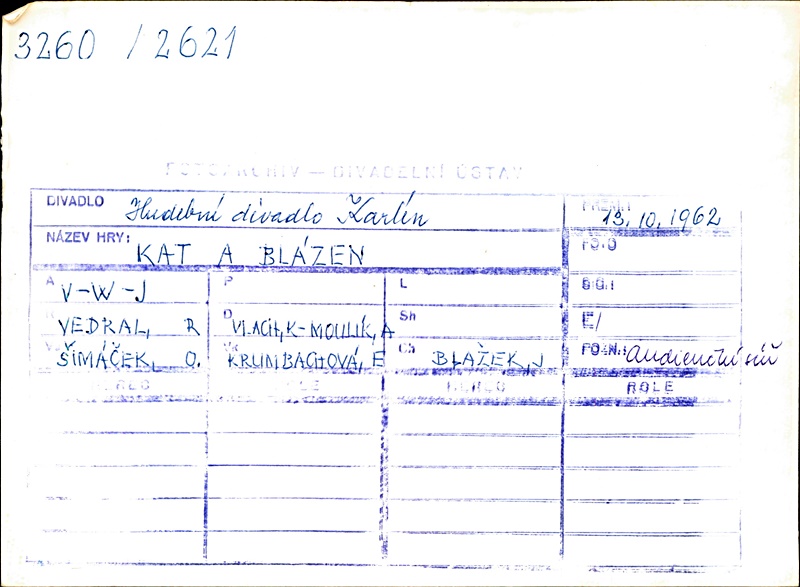 3260 / 2621
FOTOARCHIV — DIVADELNÍ ÚSTAV
DIVADLO Hudební divadlo Karlín PREM.: 13. 10. 1962
NÁZEV HRY: KAT A BLÁZEN FOTO
A V-W-J P L
VEDRAL, R D VLACH, K-MOULÍK, A Sh E/
ŠIMÁČEK, O. KRUMBACHOVÁ, E Ch BLAŽEK, J POZN.: audienční síň
HEREC ROLE HEREC ROLE